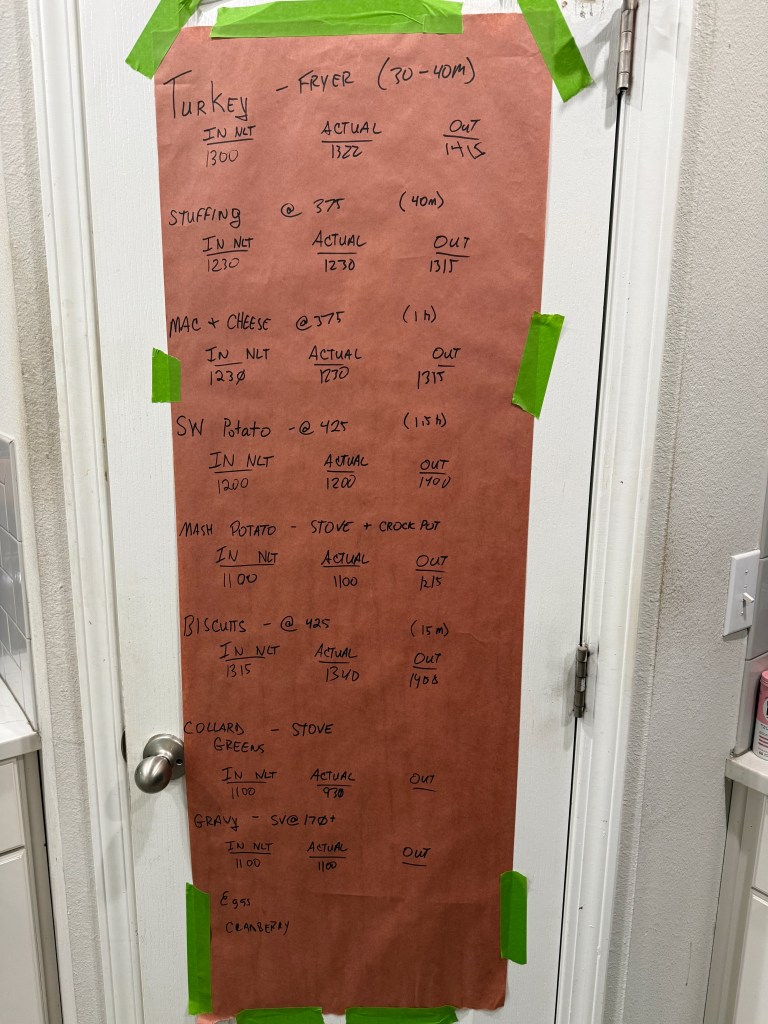 Turkey - Fryer (30-40m)
IN NLT ACTUAL OUT
1300 1322 1415
STUFFING @ 375 (40m)
IN NLT ACTUAL OUT
1230 1230 1315
MAC + CHEESE @375 (1h)
IN NLT ACTUAL OUT
123Ø 1230 1315
SW Potato - @ 425 (1.5h)
IN NLT ACTUAL OUT
1200 1200 1400
MASH POTATO - STOVE + CROCK POT
IN NLT ACTUAL OUT
1100 1100 1215
BISCUITS - @ 425 (15m)
IN NLT ACTUAL OUT
1315 1340 1400
COLLARD - STOVE
GREENS
IN NLT ACTUAL OUT
1100 930
GRAVY - SV@17Ø+
IN NLT ACTUAL OUT
1100 1100
Eggs
CRANBERRY